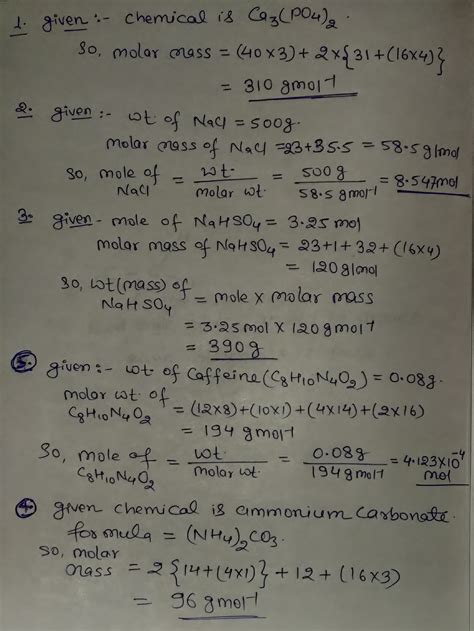 1. given :- chemical is Ca3(PO4)2.
So, molar mass = (40×3) + 2×{31+(16×4)}
= 310 gmol-1
2. given :- wt of NaCl = 500g.
molar mass of NaCl = 23+35.5 = 58.5g/mol
So, mole of NaCl = wt. / molar wt. = 500g / 58.5 gmol-1 = 8.547mol
3. given - mole of NaHSO4 = 3.25 mol
molar mass of NaHSO4 = 23+1+32+(16×4)
= 120g/mol
So, wt(mass) of NaHSO4 = mole × molar mass
= 3.25mol × 120gmol-1
= 390g
5. given :- wt. of Caffeine (C8H10N4O2) = 0.08g.
molar wt of C8H10N4O2 = (12×8)+(10×1)+(4×14)+(2×16)
= 194 gmol-1
So, mole of C8H10N4O2 = wt. / molar wt. = 0.08g / 194gmol-1 = 4.123×10-4 mol
4. given chemical is ammonium carbonate.
formula = (NH4)2CO3.
So, molar mass = 2{14+(4×1)}+12+(16×3)
= 96gmol-1